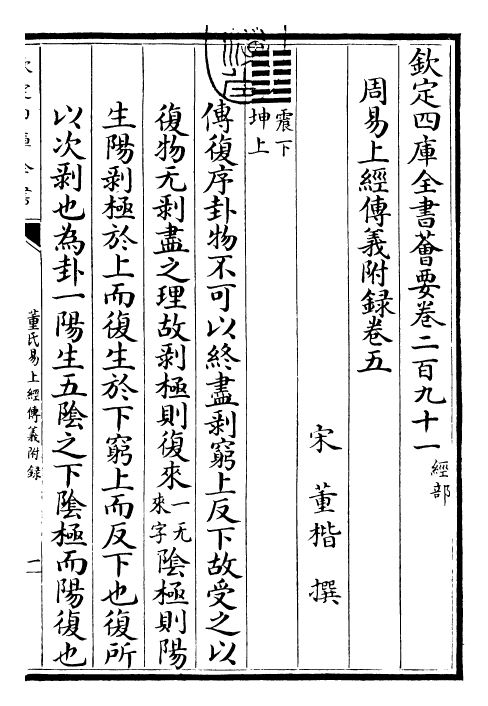 欽定四庫全書薈要卷二百九十一 經部
周易上經傳義附録卷五
宋 董楷 撰
震下
坤上
傳復序卦物不可以終盡剥窮上反下故受之以
復物无剥盡之理故剥極則復來一无來字陰極則陽
生陽剥極於上而復生於下窮上而反下也復所
以次剥也為卦一陽生五陰之下陰極而陽復也
欽定四庫全書
董氏易上經傳義附録
一